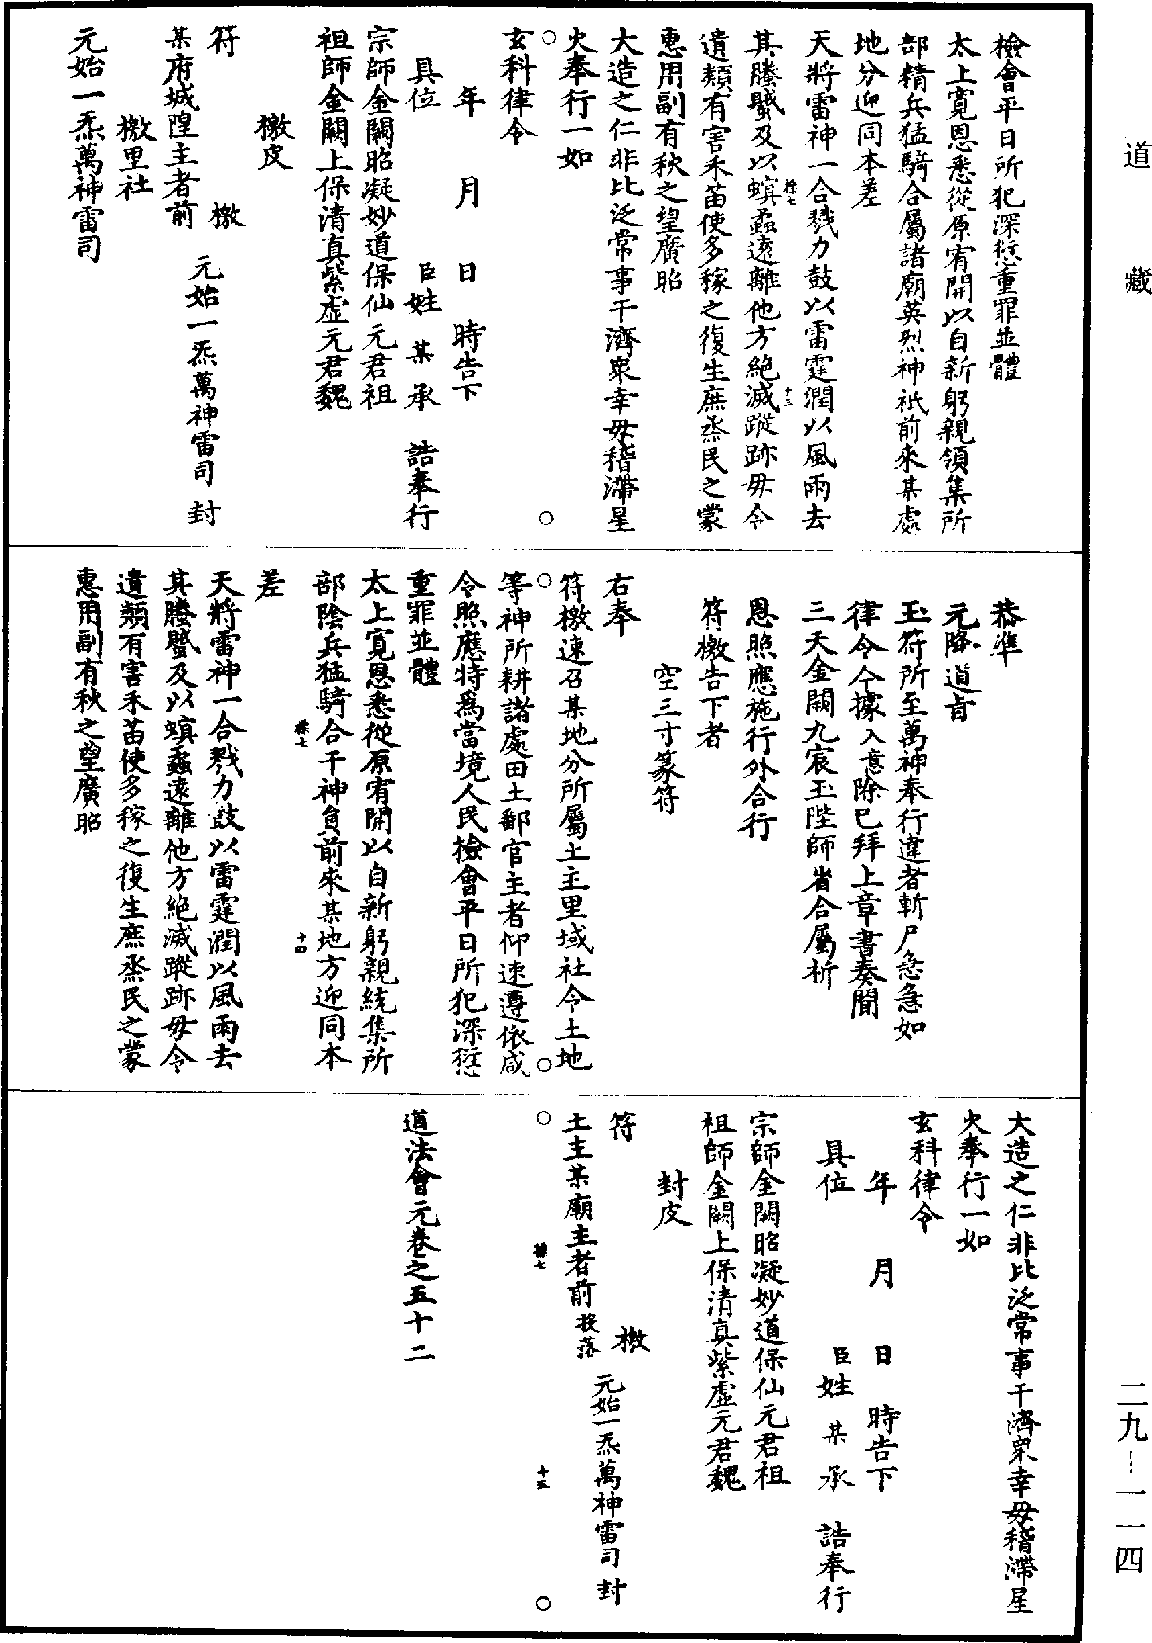 道藏
檢會平日所犯深愆重罪並體
太上寬恩悉從原宥開以自新躬親領集所
部精兵猛騎合屬諸廟英烈神祇前來某處
地分迎同本差
天將雷神一合戮力鼓以雷霆潤以風雨去
其螣蟘及以螟蟊遠離他方絶滅蹤跡毋令
遺類有害禾苗使多稼之復生庶烝民之蒙
惠用副有秋之望廣昭
大造之仁非比泛常事干濟衆幸毋稽滯星
火奉行一如
玄科律令
年 月 日 時告下
具位 臣姓 某 承 誥奉行
宗師金闕昭凝妙道保仙元君祖
祖師金闕上保清真紫虛元君魏
檄皮
符 檄 元始一炁萬神雷司 封
某府城隍主者前
檄里社
元始一炁萬神雷司
恭準
元降道旨
玉符所至萬神奉行違者斬尸急急如
律令今據入意除已拜上章書奏聞
三天金闕九宸玉陛師省合屬祈
恩照應施行外合行
符檄告下者
空三寸篆符
右奉
符檄速召某地分所屬土主里域社令土地
等神所耕諸處田土鄱官主者仰速遵依咸
令照應特爲當境人民檢會平日所犯深愆
重罪並體
太上寬恩悉從原宥開以自新躬親統集所
部陰兵猛騎合干神負前來某地方迎同本
差
天將雷神一合戮力鼓以雷霆潤以風雨去
其螣蟘及以螟蟊遠離他方絶滅蹤跡毋令
遺類有害禾苗使多稼之復生庶烝民之蒙
惠用副有秋之望廣昭
大造之仁非比泛常事干濟衆幸毋稽滯星
火奉行一如
玄科律令
年 月 日 時告下
具位 臣姓 某 承 誥奉行
宗師金闕昭凝妙道保仙元君祖
祖師金闕上保清真紫虛元君魏
封皮
符 檄 元始一炁萬神雷司 封
土主某廟主者前 投落
道法會元卷之五十二
二九—一一四